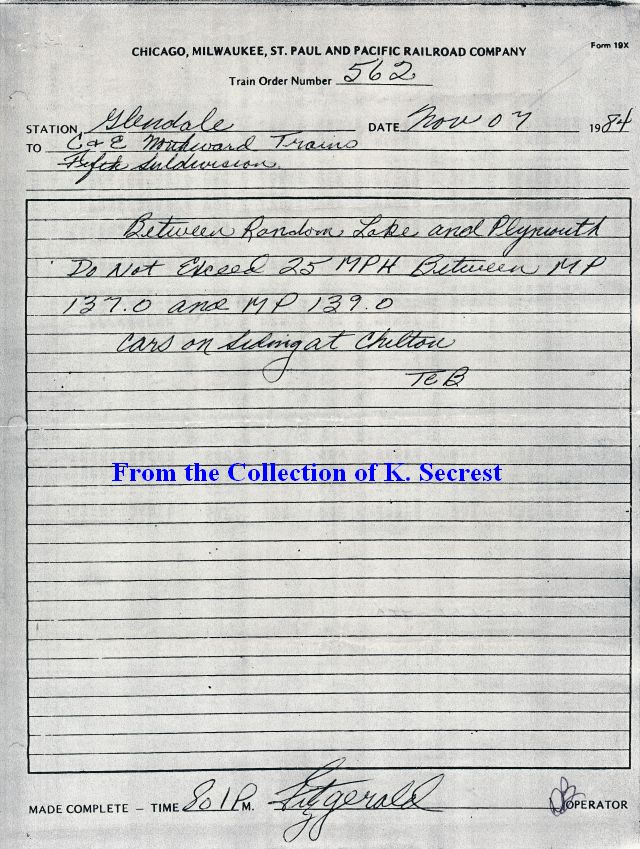 Form 19X
CHICAGO, MILWAUKEE, ST. PAUL AND PACIFIC RAILROAD COMPANY
Train Order Number 562
STATION Glendale DATE Nov 07 1984
TO C & E Northward Trains
Fifth Subdivision
Between Random Lake and Plymouth
Do Not Exceed 25 MPH Between MP
137.0 and MP 139.0
Cars on Siding at Chilton
TCB
From the Collection of K. Secrest
MADE COMPLETE – TIME 801 P M. Fitzgerald OPERATOR